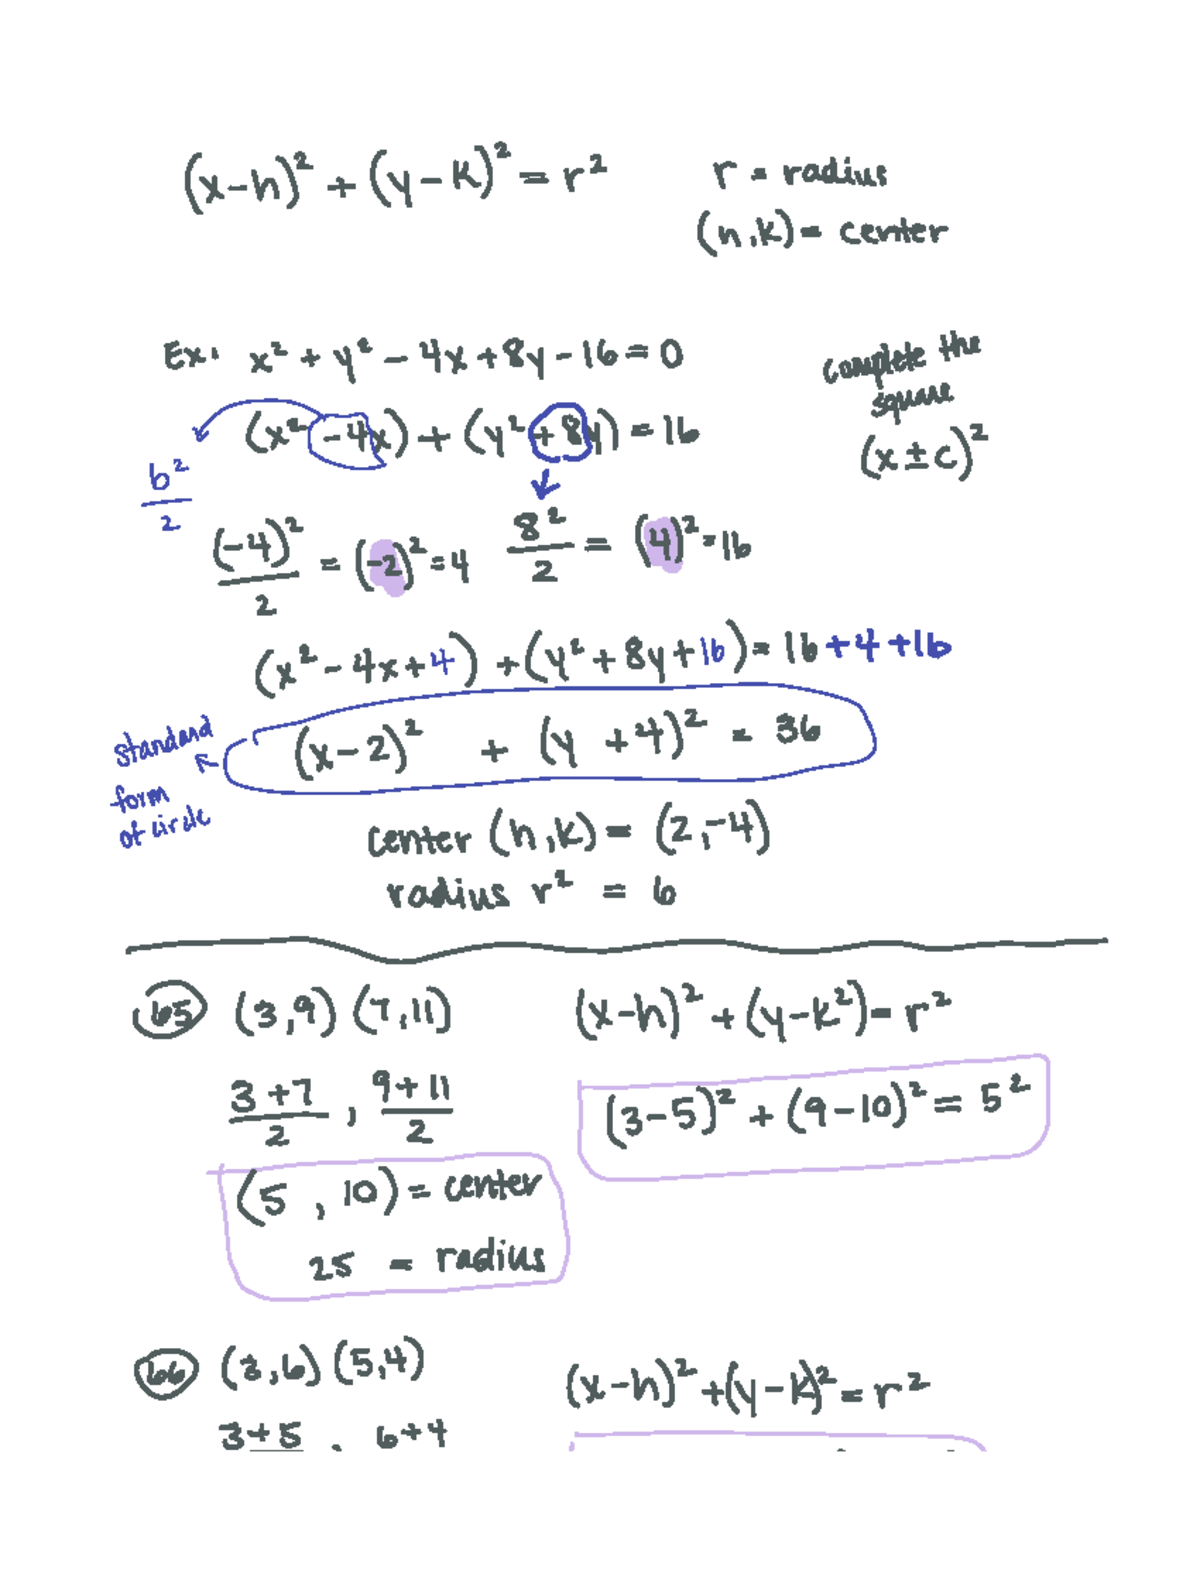 (x-h)² + (y-k)² = r²
r = radius
(h,k) = center
Ex. x² + y² - 4x + 8y - 16 = 0
complete the
square
(x ± c)²
(x² - 4x) + (y² + 8y) = 16
b²/2
(-4)²/2 = (-2)² = 4
8²/2 = (4)² = 16
(x² - 4x + 4) + (y² + 8y + 16) = 16 + 4 + 16
(x-2)² + (y + 4)² = 36
standard
form
of circle
center (h,k) = (2,-4)
radius r² = 6
65 (3,9) (7,11)
(x-h)² + (y-k²) = r²
3+7/2 , 9+11/2
(3-5)² + (9-10)² = 5²
(5 , 10) = center
25 = radius
66 (3,6) (5,4)
(x-h)² + (y-k)² = r²
3+5 , 6+4